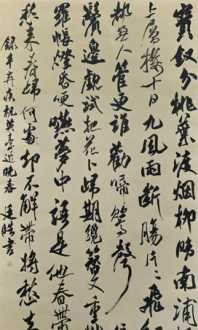 寶釵分桃葉渡烟柳暗南浦怕
上層樓十日九風雨斷腸片片飛紅
都無人管更誰勸啼鶯聲住
鬢邊覷試把花卜歸期纔簪又重數
羅帳燈昏哽咽夢中語是他春帶
愁來春歸何處却不解帶將愁去
錄辛棄疾祝英臺近晚春 書